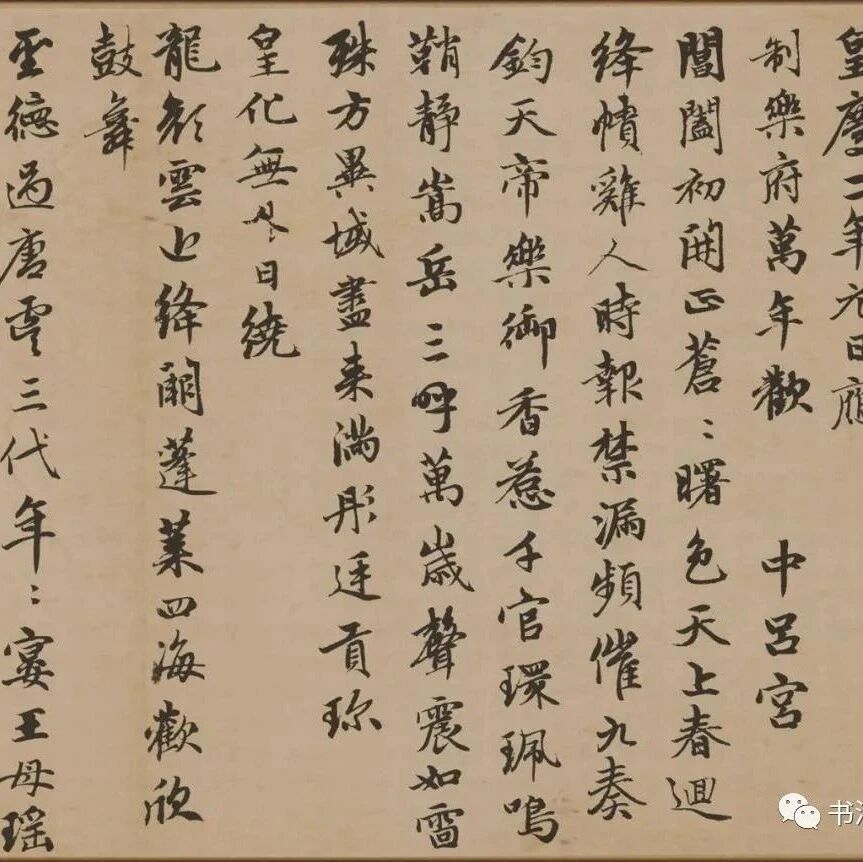 皇慶二年元日應
制樂府萬年歡 中呂宮
閶闔初開正蒼〻曙色天上春迴
絳幘雞人時報禁漏頻催九奏
鈞天帝樂御香惹千官環珮鳴
鞘靜嵩岳三呼萬歲聲震如雷
殊方異域盡來滿彤廷貢珎
皇化無外日繞
龍顏雲近絳闕蓬萊四海歡欣
鼓舞
聖德過唐虞三代年〻宴王母瑤
书